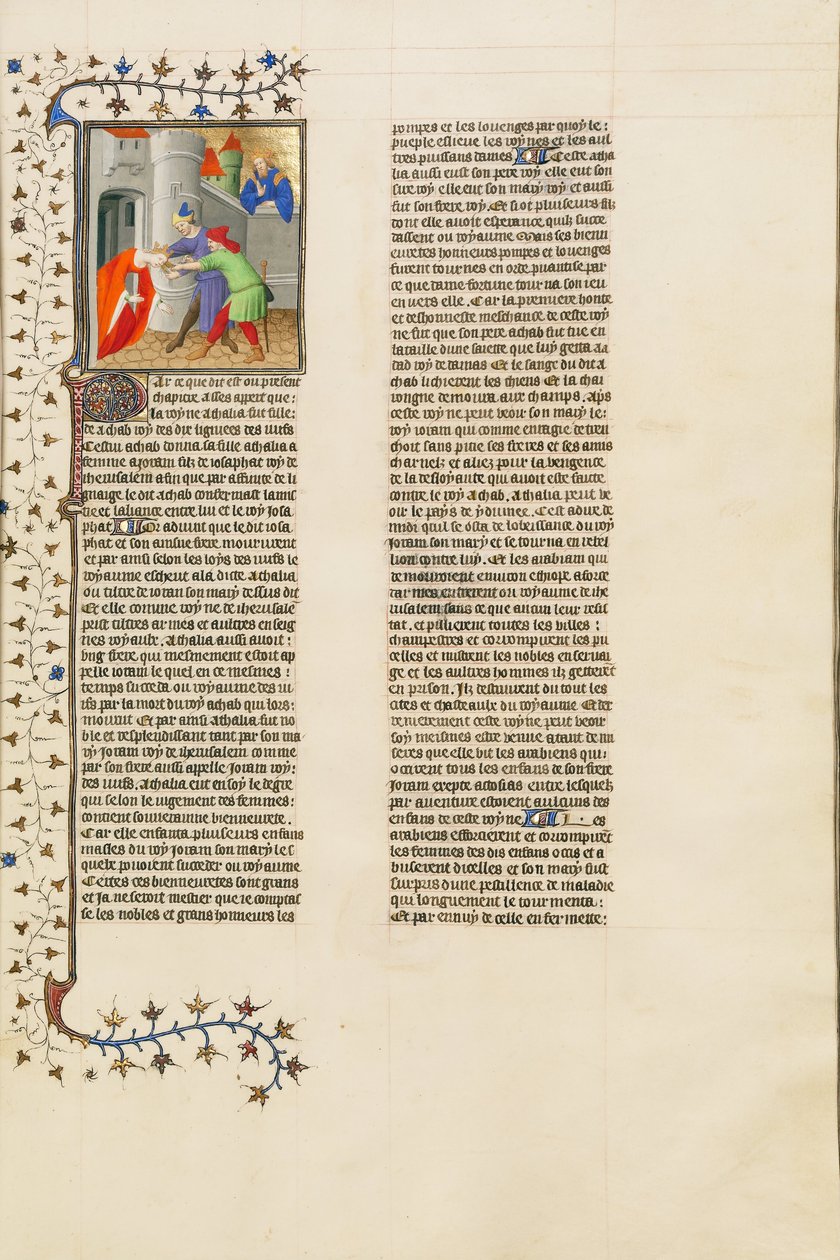 Par ce que dit est ou present
chapitre asses appert que :
la royne athalia fut fille :
de achab roy des dix lignees des iuifs
Cestui achab donna sa fille athalia a
femme a ioram filz de iosaphat roy de
iherusalem afin que par affinite de li
gnaige le dit achab confermast lamis
tie et laliance entre lui et le roy iosa
phat Or aduint que le dit iosa
phat et son ainsne frere moururent
et par ainsi selon les loys des iuifs le
royaume escheut a la dicte athalia
ou tiltre de ioram son mary dessus dit
Et elle comme royne de iherusale
prist tiltres armes et aultres enseig
nes royaulx . athalia aussi auoit :
vng frere qui mesmement estoit ap
pelle ioram le quel en ce mesmes :
temps succeda ou royaume des iu
ifs par la mort du roy achab qui lors :
mourut Et par ainsi athalia fut no
ble et resplendissant tant par son ma
ry ioram roy de iherusalem comme
par son frere aussi appelle ioram roy :
des iuifs . athalia eut en soy le degre
qui selon le iugement des femmes :
contient souuerainne bieneurete .
Car elle enfanta pluseurs enfans
masles du roy ioram son mary les
quelx pouoient succeder ou royaume
Certes ces bieneuretes sont grans
et ia ne seroit mestier que ie comptas
se les nobles et grans honneurs les
pompes et les louenges par quoy le :
pueple eslieue les roynes et les aul
tres puissans dames Ceste atha
lia aussi eust son pere roy elle eut son
sire roy elle eut son mary roy et aussi
fut son frere roy . Et si ot pluseurs filz
dont elle auoit esperance quilz succe
dassent ou royaume Mais ses bieneu
euretes honneurs pompes et louenges
furent tournes en orde puantise par
ce que dame fortune tourna son ieu
en uers elle . Car la premiere honte
et deshonneste meschance de ceste roy
ne fut que son pere achab fut tue en
bataille dune saiette que luy getta aa
dad roy de damas Et le sang du dit a
chab lichierent les chiens Et la cha
rongne demoura aux champs . Aps
ceste royne peut veoir son mary le :
roy ioram qui comme enragie detren
choit sans pitie ses freres et ses amis
charnelz et aliez pour la vengence
de la desloyaute qui auoit este faicte
contre le roy achab . Athalia peut ve
oir le pays de ydumee . Cest adire de
midi quil se osta de lobeissance du roy
ioram son mary et se tourna en rebel
lion contre luy . Et les arabians qui
demouroient enuiron ethiope a force
darmes entrerent ou royaume de ihe
rusalem sans ce que aucun leur resis
tat . et pillerent toutes les villes :
champestres et corrompirent les pu
celles et mistrent les nobles en seruai
ge et les aultres hommes ilz getterēt
en prison . Ilz destruirent du tout les
cites et chasteaulx du royaume Et der
renierement ceste royne peut veoir
soy mesmes estre venue a tant de mi
seres que elle vit les arabiens qui :
occirent tous les enfans de son frere
ioram excepte acosias entre lesquelz
par auenture estoient aulcuns des
enfans de ceste royne Les
arabiens efforcierent et corrompirēt
les femmes des dis enfans occis et a
buserent dicelles et son mary fust
surpris dune pestillence de maladie
qui longuement le tourmenta :
Et par ennuy de celle enfermette :